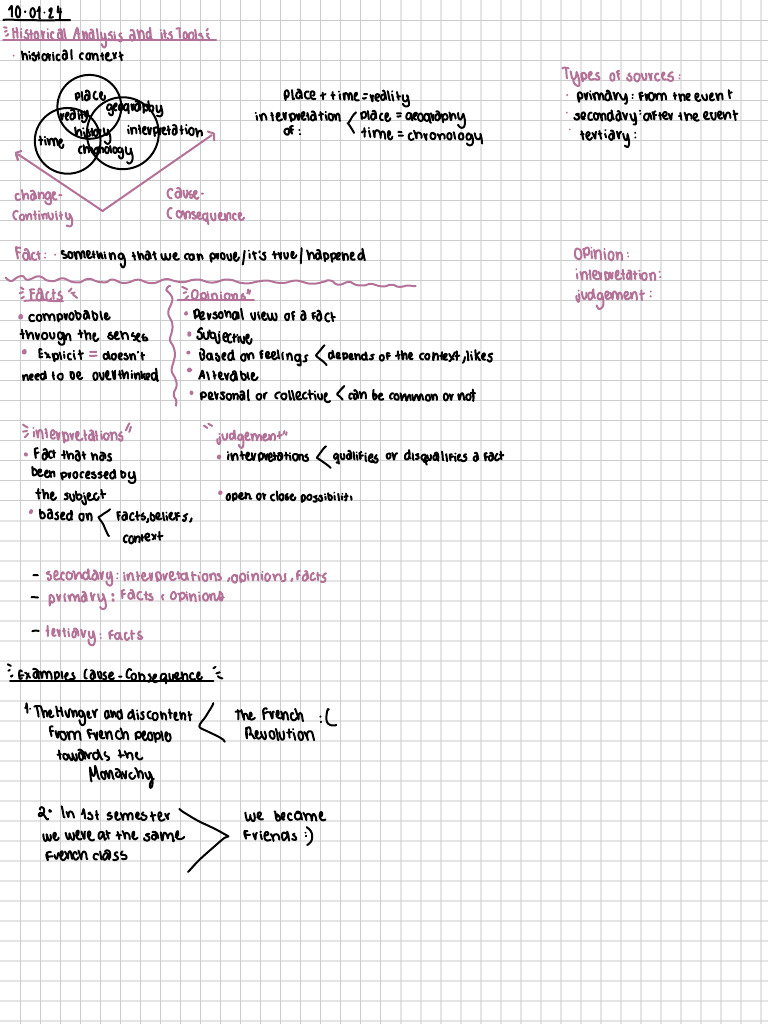 10.01.24
Historical Analysis and its Tools:
· historical context
place
geography
reality
history
interpretation
time
chronology
change-
Continuity
Cause-
Consequence
place + time = reality
interpretation
of:
place = geography
time = chronology
Types of sources:
· primary: From the event
· secondary: after the event
· tertiary:
Fact: · something that we can prove/it's true/happened
Opinion:
interpretation:
judgement:
Facts
• comprobable
through the senses
• Explicit = doesn't
need to be overthinked
Opinions"
• Personal view of a fact
• Subjective
• Based on feelings < depends of the context, likes
• Alterable
• personal or collective < can be common or not
interpretations"
• Fact that has
been processed by
the subject
• based on < Facts, beliefs,
context
"judgement"
• interpretations < qualifies or disqualifies a fact
• open or close possibiliti
- secondary: interpretations, opinions, Facts
- primary: Facts, opinions
- tertiary: Facts
Examples Cause-Consequence
1. The Hunger and discontent
From French people
towards the
Monarchy
The French :(
Revolution
2. In 1st semester
we were at the same
French class
we became
Friends :)